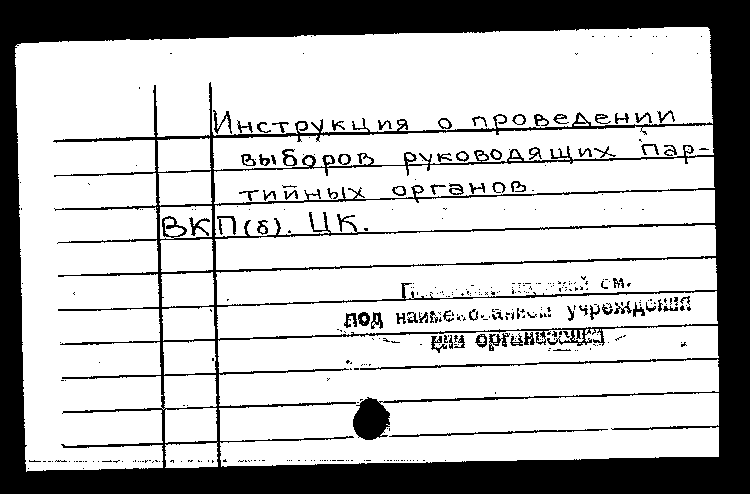 Инструкция о проведении
выборов руководящих пар-
тийных органов.
ВКП(б). ЦК.
см.
под наименованием учреждения
или организации